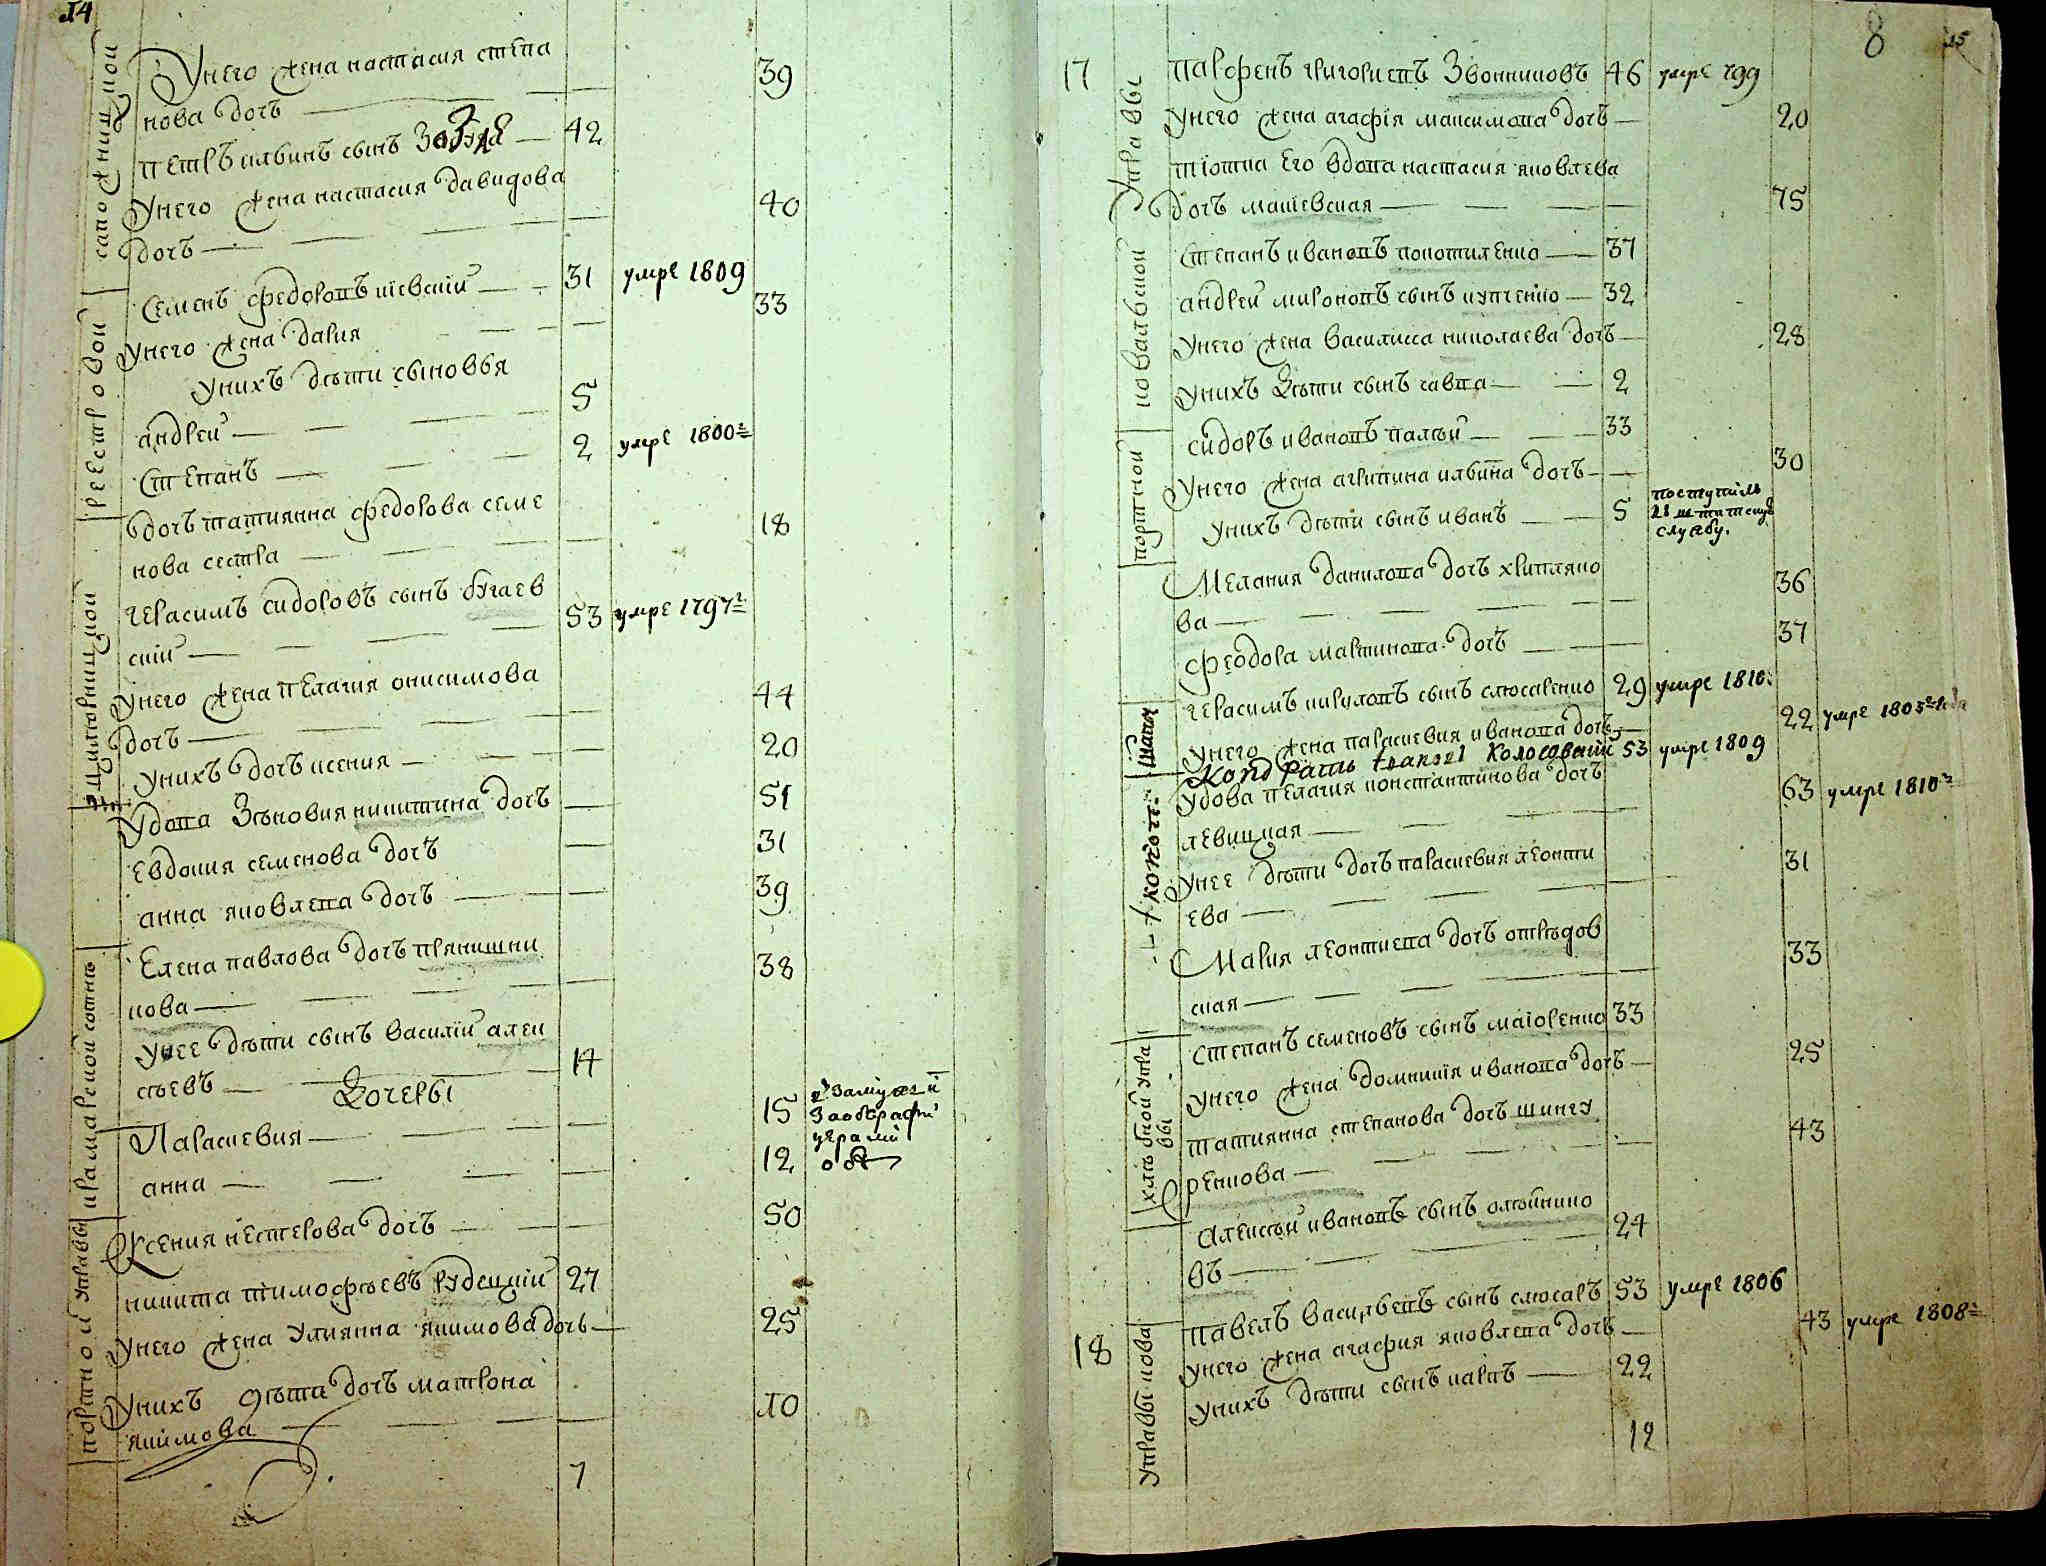 14
сапожницкой
Унего жена настасия степа
39
нова дочь
петръ илвинъ сынъ
42
Унего жена настасия давидова
40
дочь
реестровой
Семенъ федоровъ киевский 31 умре 1809
33
унего жена дария
унихъ дѣти сыновья
андрей 5
Степанъ 2 умре 1800г
дочь татиянна федорова семе
18
нова сестра
герасимъ сидоровъ сынъ бугаев
53 умре 1797г
ский
унего жена пелагия онисимова
44
дочь
унихъ дочь ксения 20
удова Зѣновия никитина дочь 51
евдокия семенова дочь 31
анна яковлева дочь 39
крамарской сотнѣ
Елена павлова дочь прянишни
38
кова
унее дѣти сынъ василий алек
сѣевъ 14
Дочеры
Параскевия 15
анна 12
Ксения нестерова дочь 50
портной управы
никита тимофѣевъ рудецкий 27
унего жена улиянна якимова дочь 25
Унихъ дѣти дочь матрона
10
якимова
7
8
15
17
управы
парфенъ григориевъ Звонниковъ 46 умре 799
унего жена агафія максимова дочь 20
тіотка его вдова настасия яковлева
дочь мациевская 75
ковальской
Степанъ ивановъ покотиленко 37
андрей мироновъ сынъ купченко 32
унего жена василисса николаева дочь 28
унихъ дѣти сынъ савка 2
портной
сидоръ ивановъ палѣй 33
унего жена агрипина илвина дочь 30
унихъ дѣти сынъ иванъ 5
поступилъ
службу.
Мелания данилова дочь хрипляко
36
ва
феодора мартинова дочь 37
герасимъ никуловъ сынъ слюсаренко 29 умре 1810.
унего жена параскевия иванова дочь 22 умре 1805го года
53 умре 1809
удова пелагия константинова дочь
63 умре 1810г
левицкая
унее дѣти дочь параскевия леонти
31
ева
Мария леонтиева дочь
33
ская
хлѣбной упра
вы
Степанъ семеновъ сынъ маіоренко 33
унего жена домникия иванова дочь 25
татиянна степанова дочь шинку
43
ренкова
Алексѣй ивановъ сынъ олѣйнико
24
въ
18
управы кова
павелъ василѣевъ сынъ слюсарь 53 умре 1806
унего жена агафия яковлева дочь 43 умре 1808г
унихъ дѣти сынъ карпъ 22
12